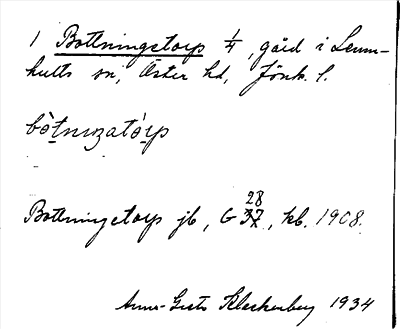 1 Bottningstorp 1/4, gård i Lem-
hults sn, Öster hd, Jönk. l.
bòtnɩŋzatórp
Bottningetorp jb, G 37 28, kb. 1908.
Anna-Greta Kleckenberg 1934